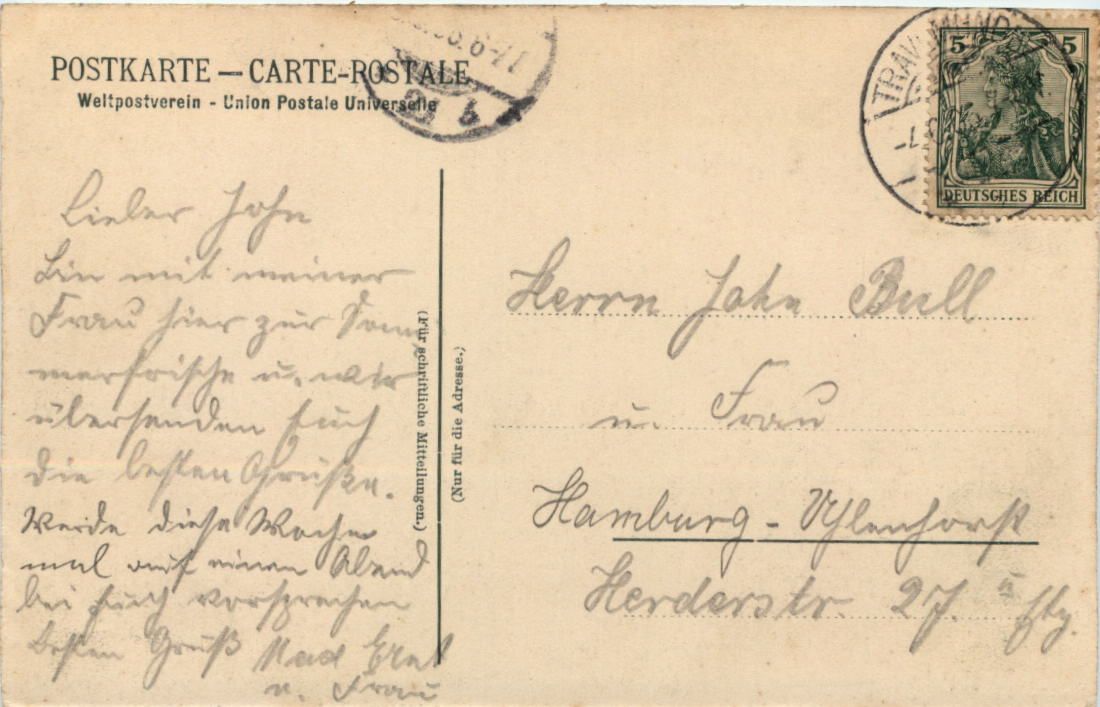 POSTKARTE — CARTE-POSTALE
Weltpostverein - Union Postale Universelle
5 5
DEUTSCHES REICH
TRAVEMÜNDE
6-7
Lieber John
bin mit meiner
Frau hier zur Som
merfrische u. wir
übersenden Euch
die besten Grüße.
Werde diese Woche
mal auf einen Abend
bei Euch vorsprechen
besten Gruß
u. Frau
(Für schriftliche Mitteilungen.)
(Nur für die Adresse.)
Herrn John Bull
u. Frau
Hamburg - Uhlenhorst
Herderstr. 27. II Etg.